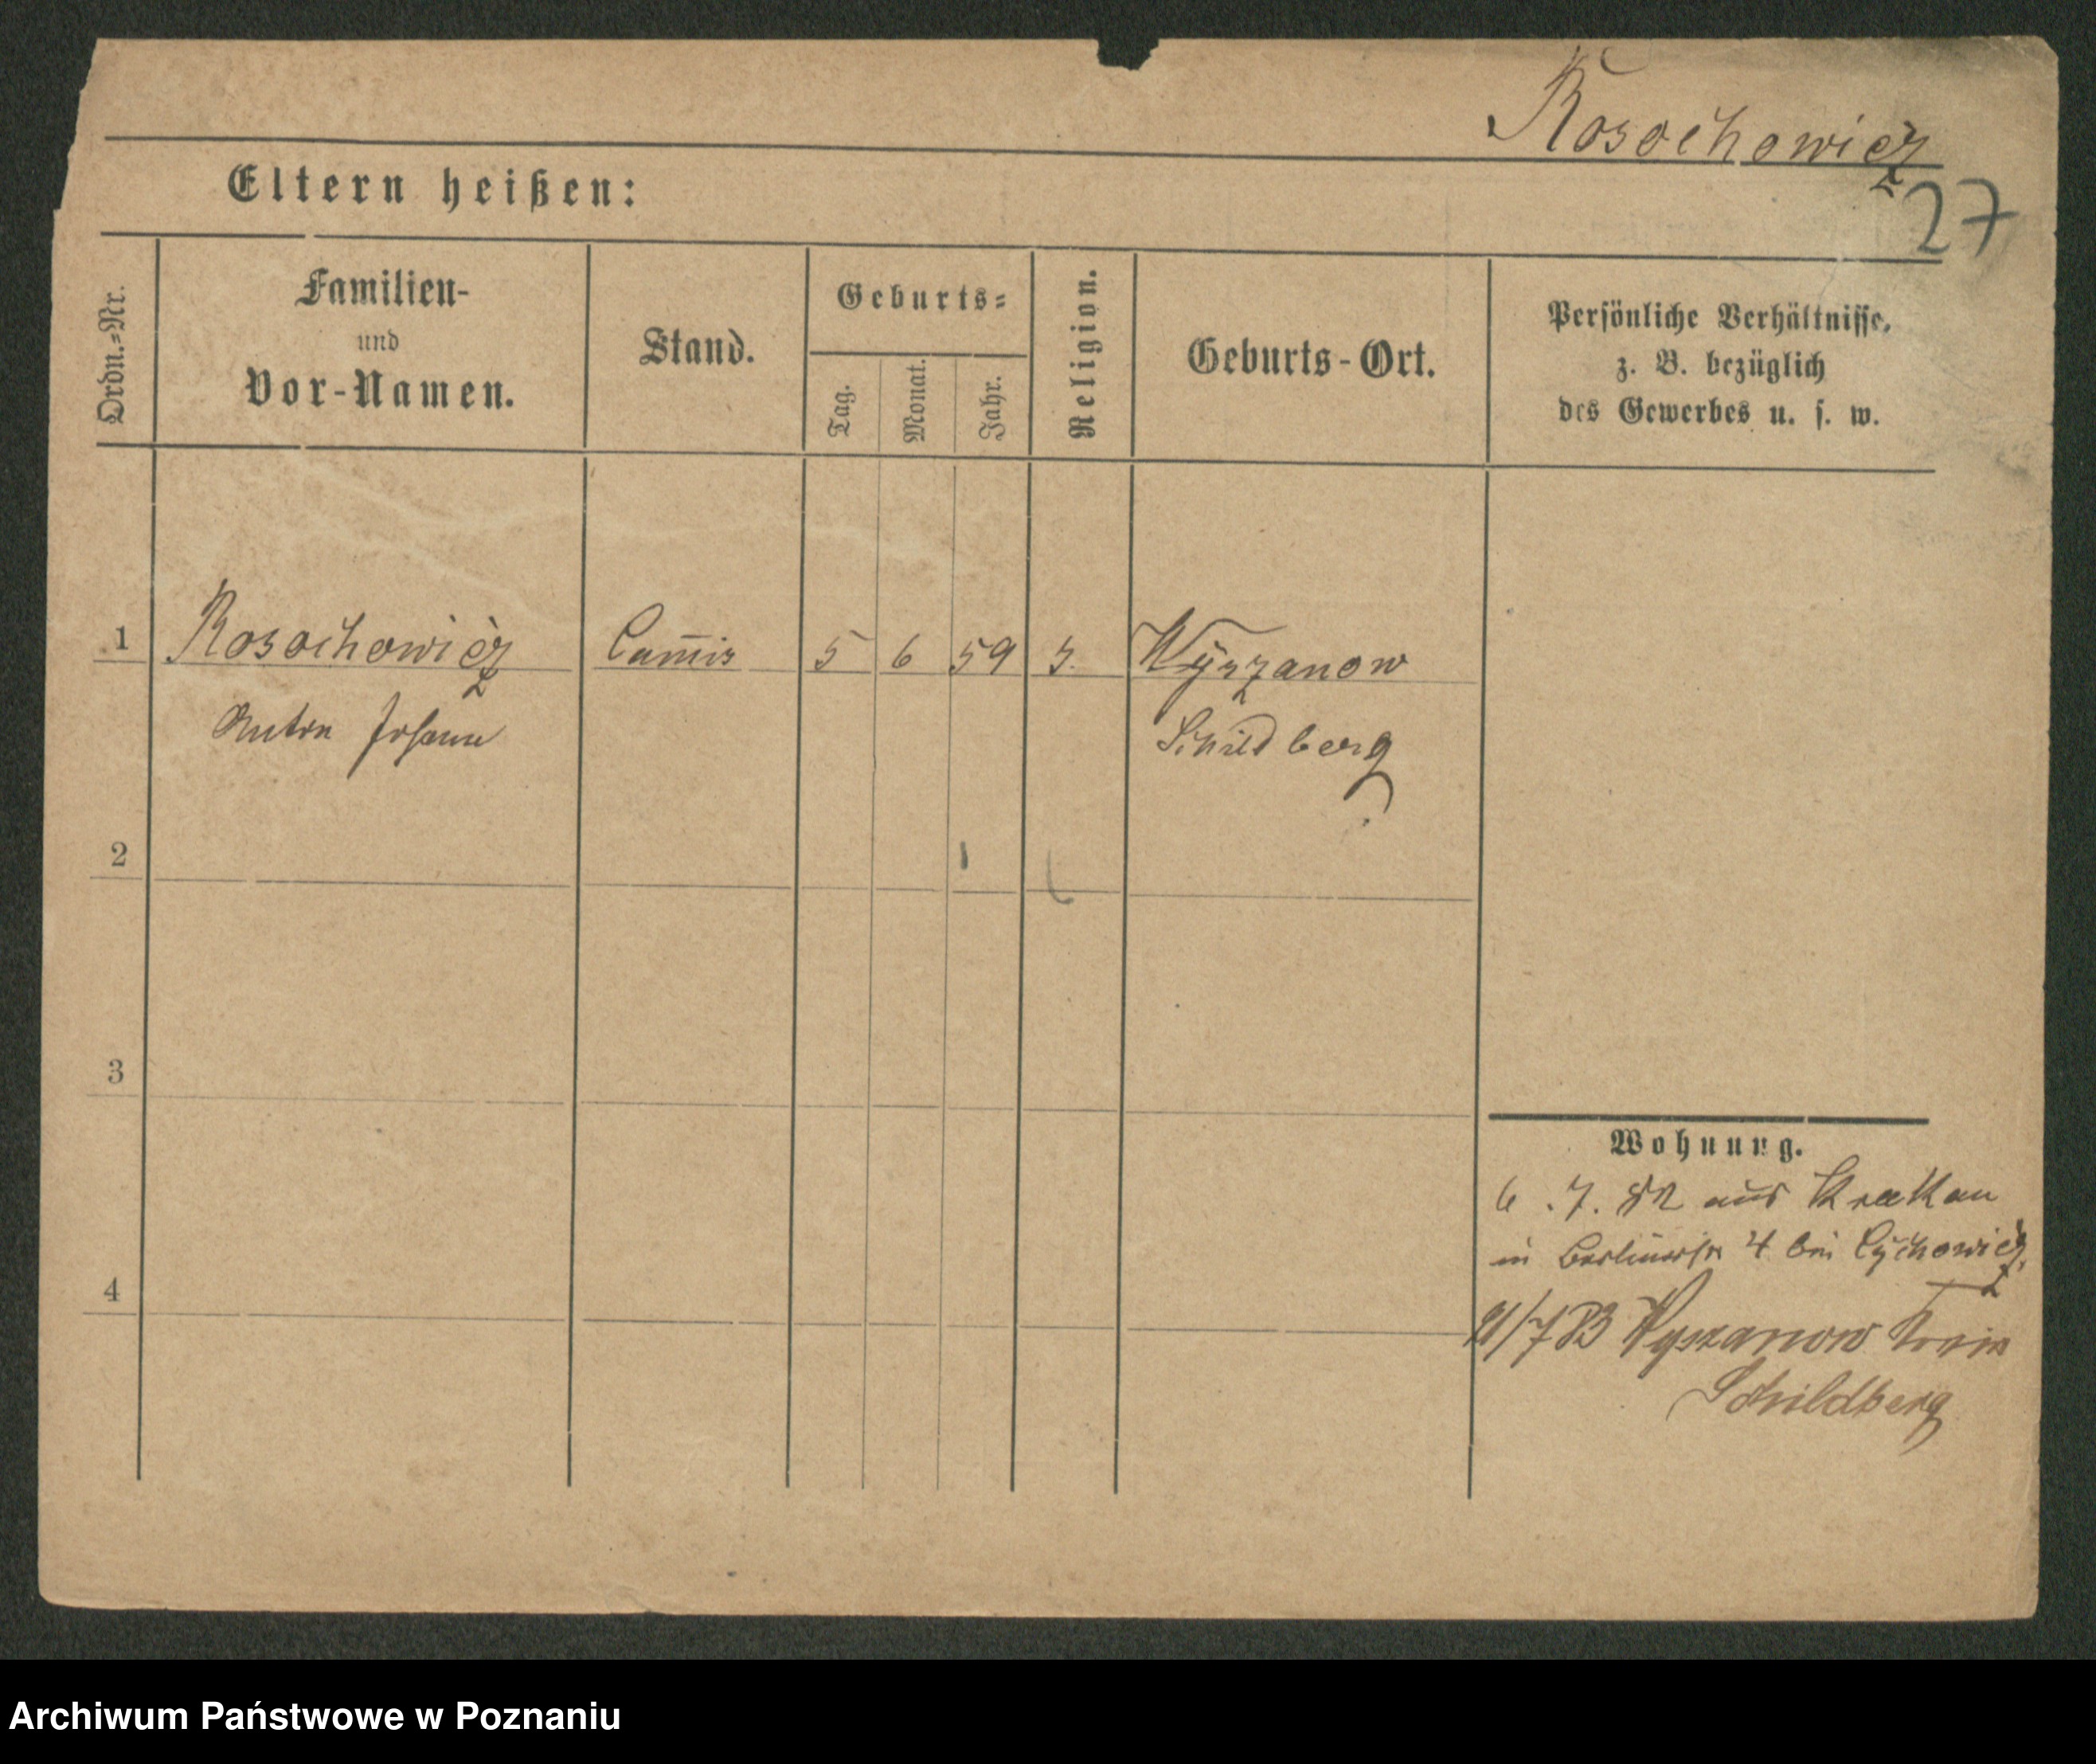 Rosochowicz
27
Eltern heißen:
Ordn.=Nr.
Familien-
und
Vor-Namen.
Stand.
Geburts=
Tag.
Monat.
Jahr.
Religion.
Geburts-Ort.
Persönliche Verhältnisse,
z. B. bezüglich
des Gewerbes u. s. w.
1 Rosochowicz Com̅is 5 6 59 Wyszanow
Anton Johann Schildberg
2
3
4
Wohnung.
6.7.82 aus Krakau
in Berlinerstr 4 bei Cychowicz
21/7 83 Wyszanow Kreis
Schildberg
Archiwum Państwowe w Poznaniu